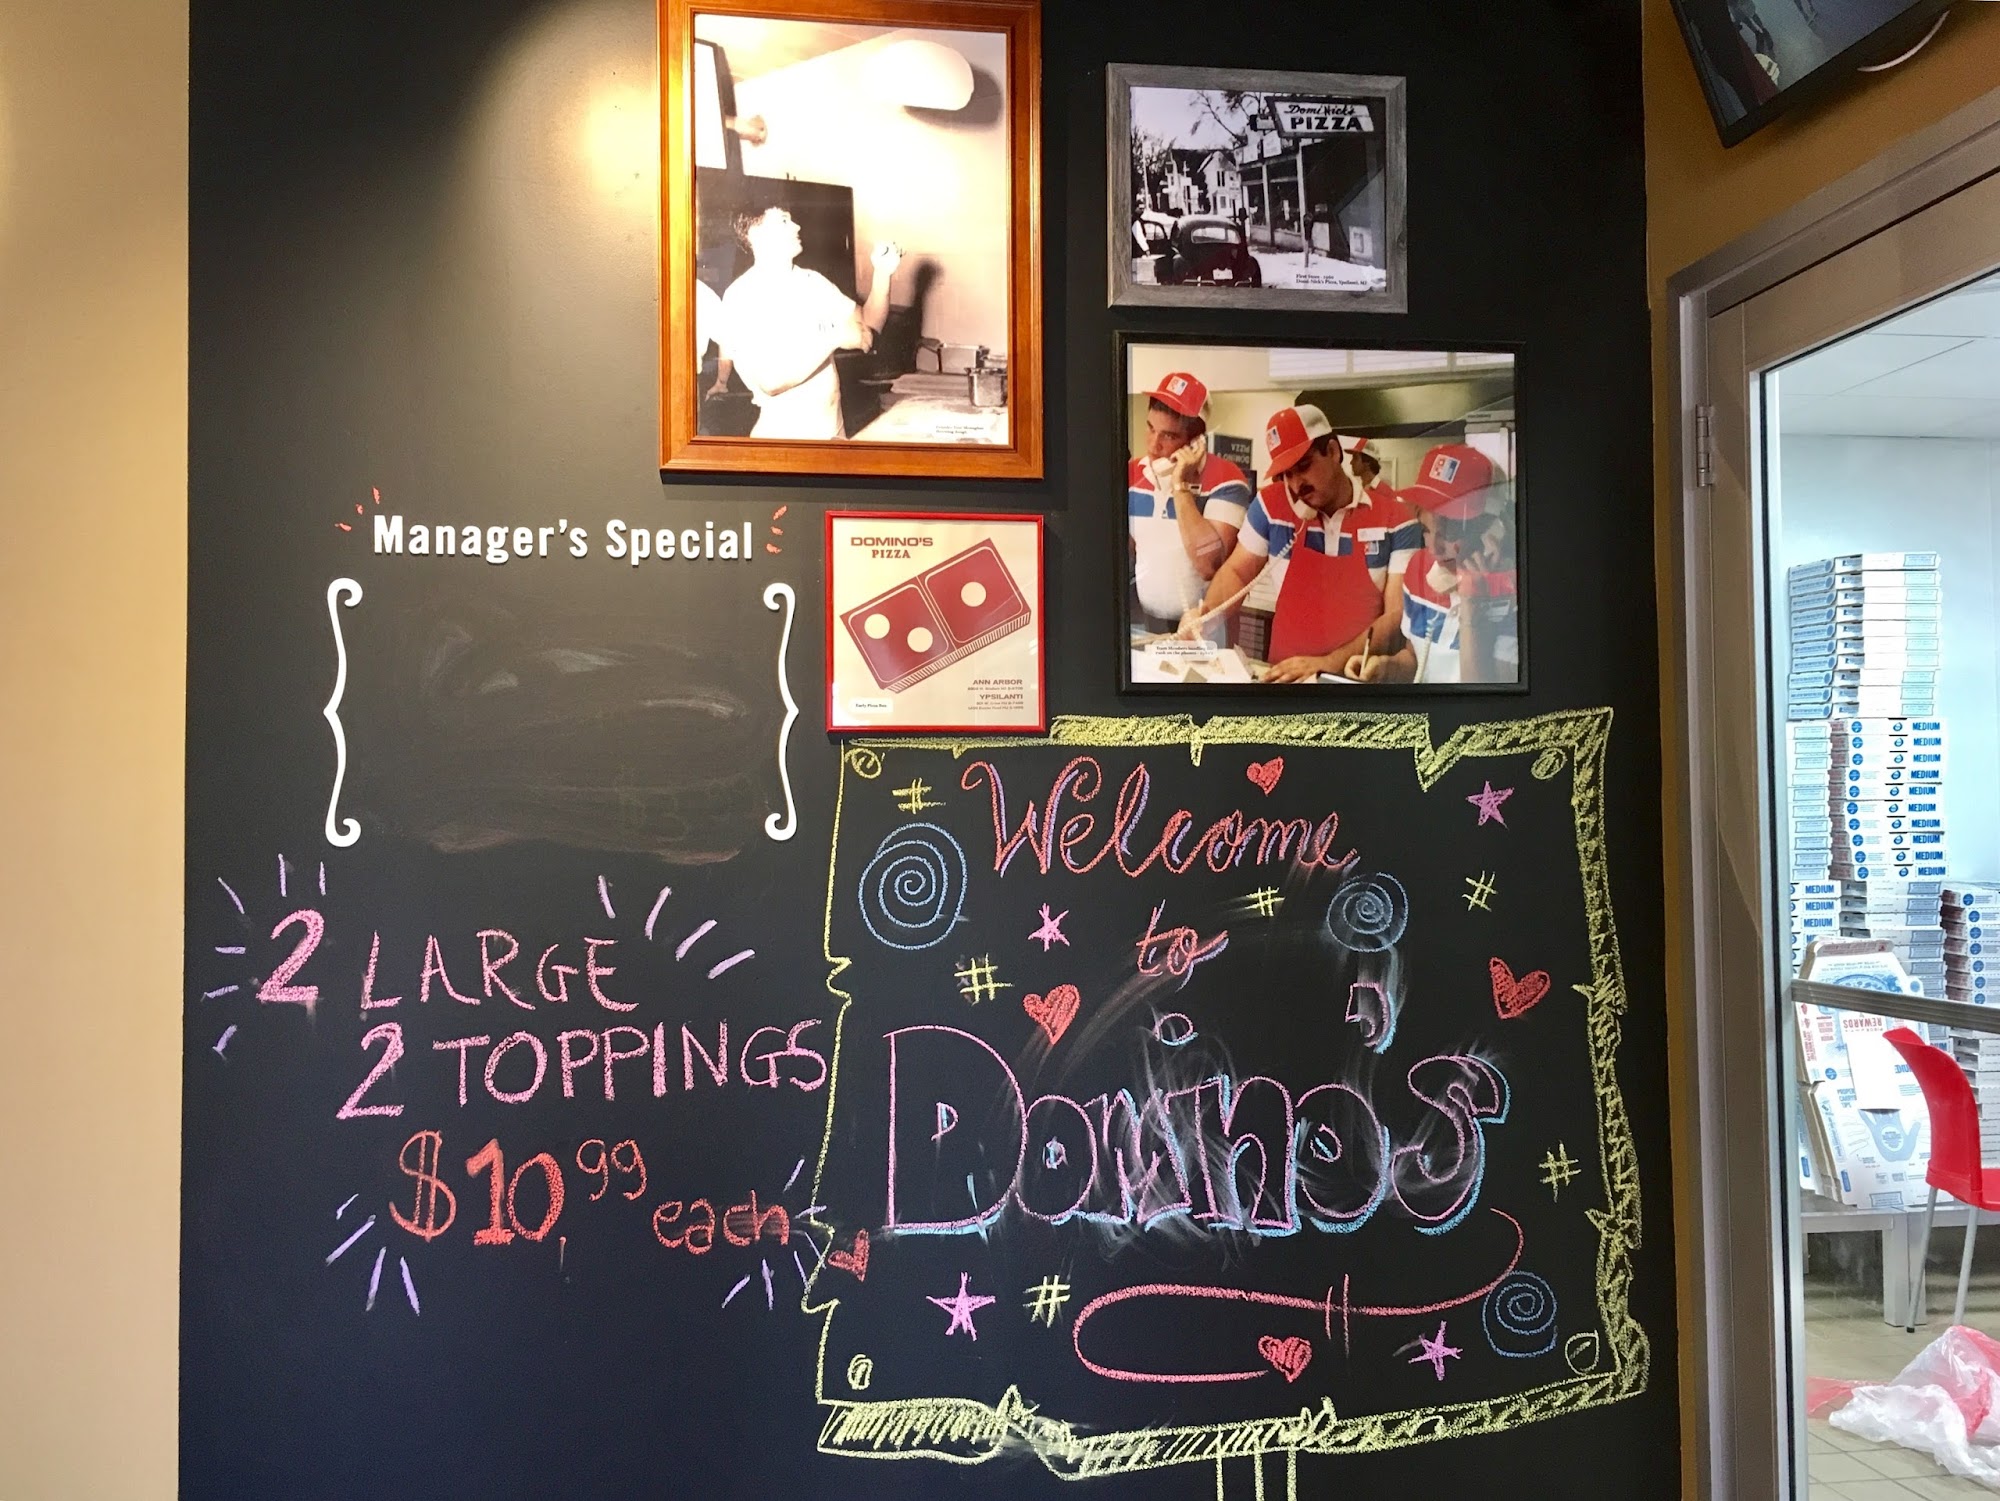 Domi Nick's
PIZZA
First Store - 1960
Domi Nick's Pizza, Ypsilanti, MI
Manager's Special
DOMINO'S
PIZZA
ANN ARBOR
YPSILANTI
Early Pizza Box
DOMINO'S
PIZZA
Team Members handling the
rush on the phones
2 LARGE
2 TOPPINGS
$10.99 each
Welcome
to
Domino's
MEDIUM
MEDIUM
MEDIUM
MEDIUM
MEDIUM
MEDIUM
MEDIUM
MEDIUM
MEDIUM
MEDIUM
MEDIUM
MEDIUM
REWARDS